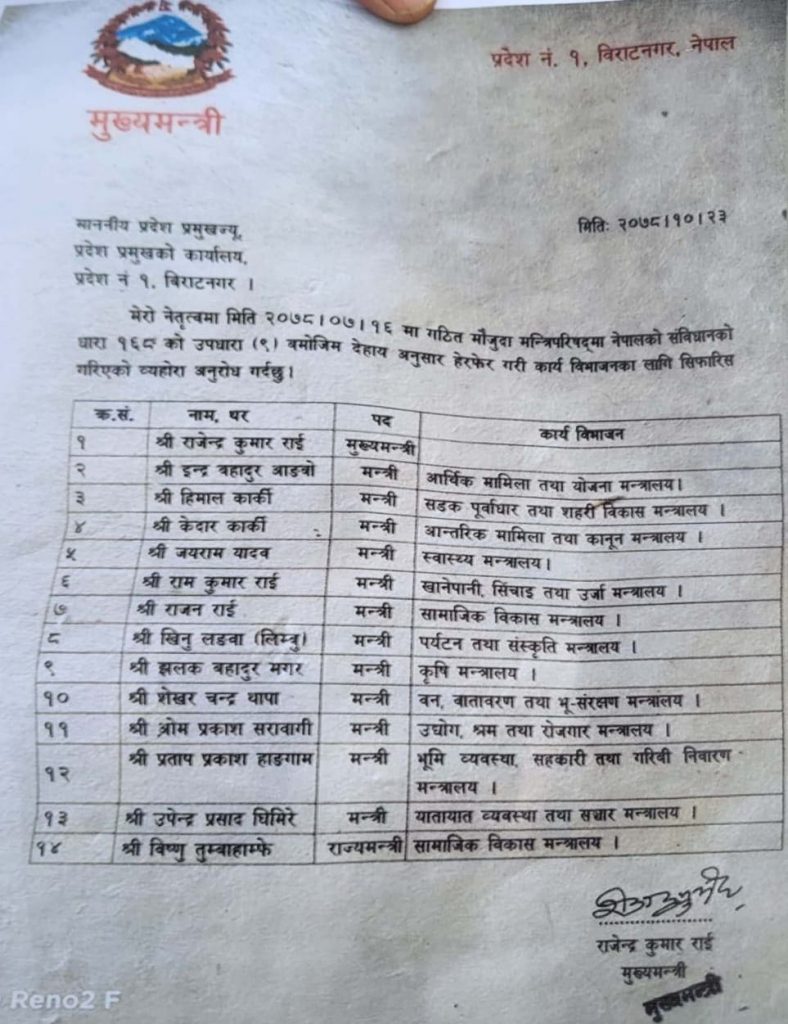 प्रदेश नं. १, विराटनगर, नेपाल
मुख्यमन्त्री
माननीय प्रदेश प्रमुखज्यू,
मितिः २०७८।१०।२३
प्रदेश प्रमुखको कार्यालय,
प्रदेश नं १, विराटनगर ।
मेरो नेतृत्वमा मिति २०७८।०७।१६ मा गठित मौजुदा मन्त्रिपरिषद्मा नेपालको संविधानको
धारा १६८ को उपधारा (९) बमोजिम देहाय अनुसार हेरफेर गरी कार्य विभाजनका लागि सिफारिस
गरिएको व्यहोरा अनुरोध गर्दछु।
क्र.सं. नाम, थर पद कार्य विभाजन
१ श्री राजेन्द्र कुमार राई मुख्यमन्त्री
२ श्री इन्द्र बहादुर आङबो मन्त्री आर्थिक मामिला तथा योजना मन्त्रालय।
३ श्री हिमाल कार्की मन्त्री सडक पूर्वाधार तथा शहरी विकास मन्त्रालय ।
४ श्री केदार कार्की मन्त्री आन्तरिक मामिला तथा कानून मन्त्रालय ।
५ श्री जयराम यादव मन्त्री स्वास्थ्य मन्त्रालय।
६ श्री राम कुमार राई मन्त्री खानेपानी, सिंचाइ तथा उर्जा मन्त्रालय ।
७ श्री राजन राई मन्त्री सामाजिक विकास मन्त्रालय ।
८ श्री खिनु लङवा (लिम्बु) मन्त्री पर्यटन तथा संस्कृति मन्त्रालय ।
९ श्री झलक बहादुर मगर मन्त्री कृषि मन्त्रालय ।
१० श्री शेखर चन्द्र थापा मन्त्री वन, वातावरण तथा भू-संरक्षण मन्त्रालय ।
११ श्री ओम प्रकाश सरावागी मन्त्री उद्योग, श्रम तथा रोजगार मन्त्रालय ।
१२ श्री प्रताप प्रकाश हाङगाम मन्त्री भूमि व्यवस्था, सहकारी तथा गरिवी निवारण
मन्त्रालय ।
१३ श्री उपेन्द्र प्रसाद घिमिरे मन्त्री यातायात व्यवस्था तथा सञ्चार मन्त्रालय ।
१४ श्री विष्णु तुम्बाहाम्फे राज्यमन्त्री सामाजिक विकास मन्त्रालय ।
राजेन्द्र कुमार राई
मुख्यमन्त्री
मुख्यमन्त्री
Reno2 F